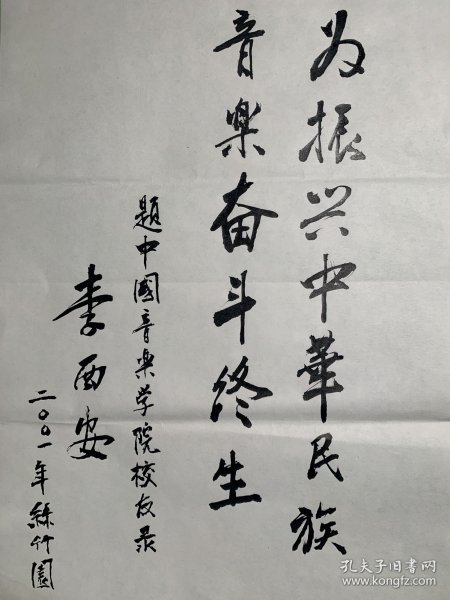 为振兴中華民族
音樂奋斗终生
題中國音樂学院校友录
李西安
二〇〇一年絲竹園
孔夫子旧書网
www.kongfz.com